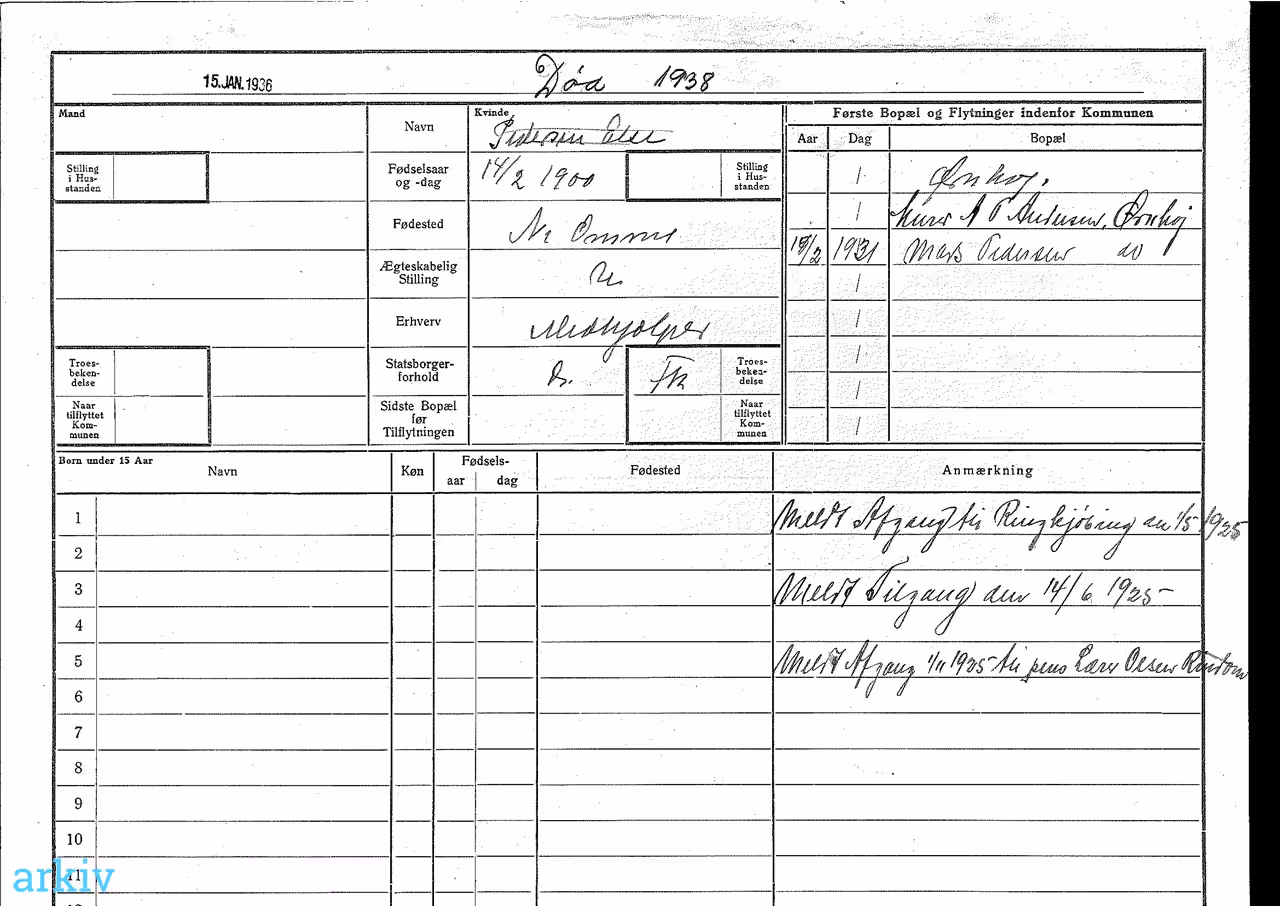 15.JAN.1936
Død 1938
Mand
Navn
Kvinde
Pedersen Else
Første Bopæl og Flytninger indenfor Kommunen
Aar Dag Bopæl
Stilling i Hus-standen
Fødselsaar og -dag
14/2 1900
Stilling i Hus-standen
/ Ørnhoj.
Fødested
Nr Omme
/ Murer A P Andersen, Ørnhoj
15/2 1931 Mads Pedersen do
Ægteskabelig Stilling
U
/
Erhverv
Medhjælper
/
Troes-beken-delse
Statsborger-forhold
D.
Fk
Troes-beken-delse
/
/
Naar tilflyttet Kom-munen
Sidste Bopæl før Tilflytningen
Naar tilflyttet Kom-munen
/
Børn under 15 Aar
Navn
Køn
Fødsels-
aar dag
Fødested
Anmærkning
1 Meldt Afgang til Ringkjøbing den 1/5 1925
2
3 Meldt Tilgang den 14/6 1925-
4
5 Meldt Afgang 1/11 1925- til pens Lærer Olsen Rindom
6
7
8
9
10
11
arkiv